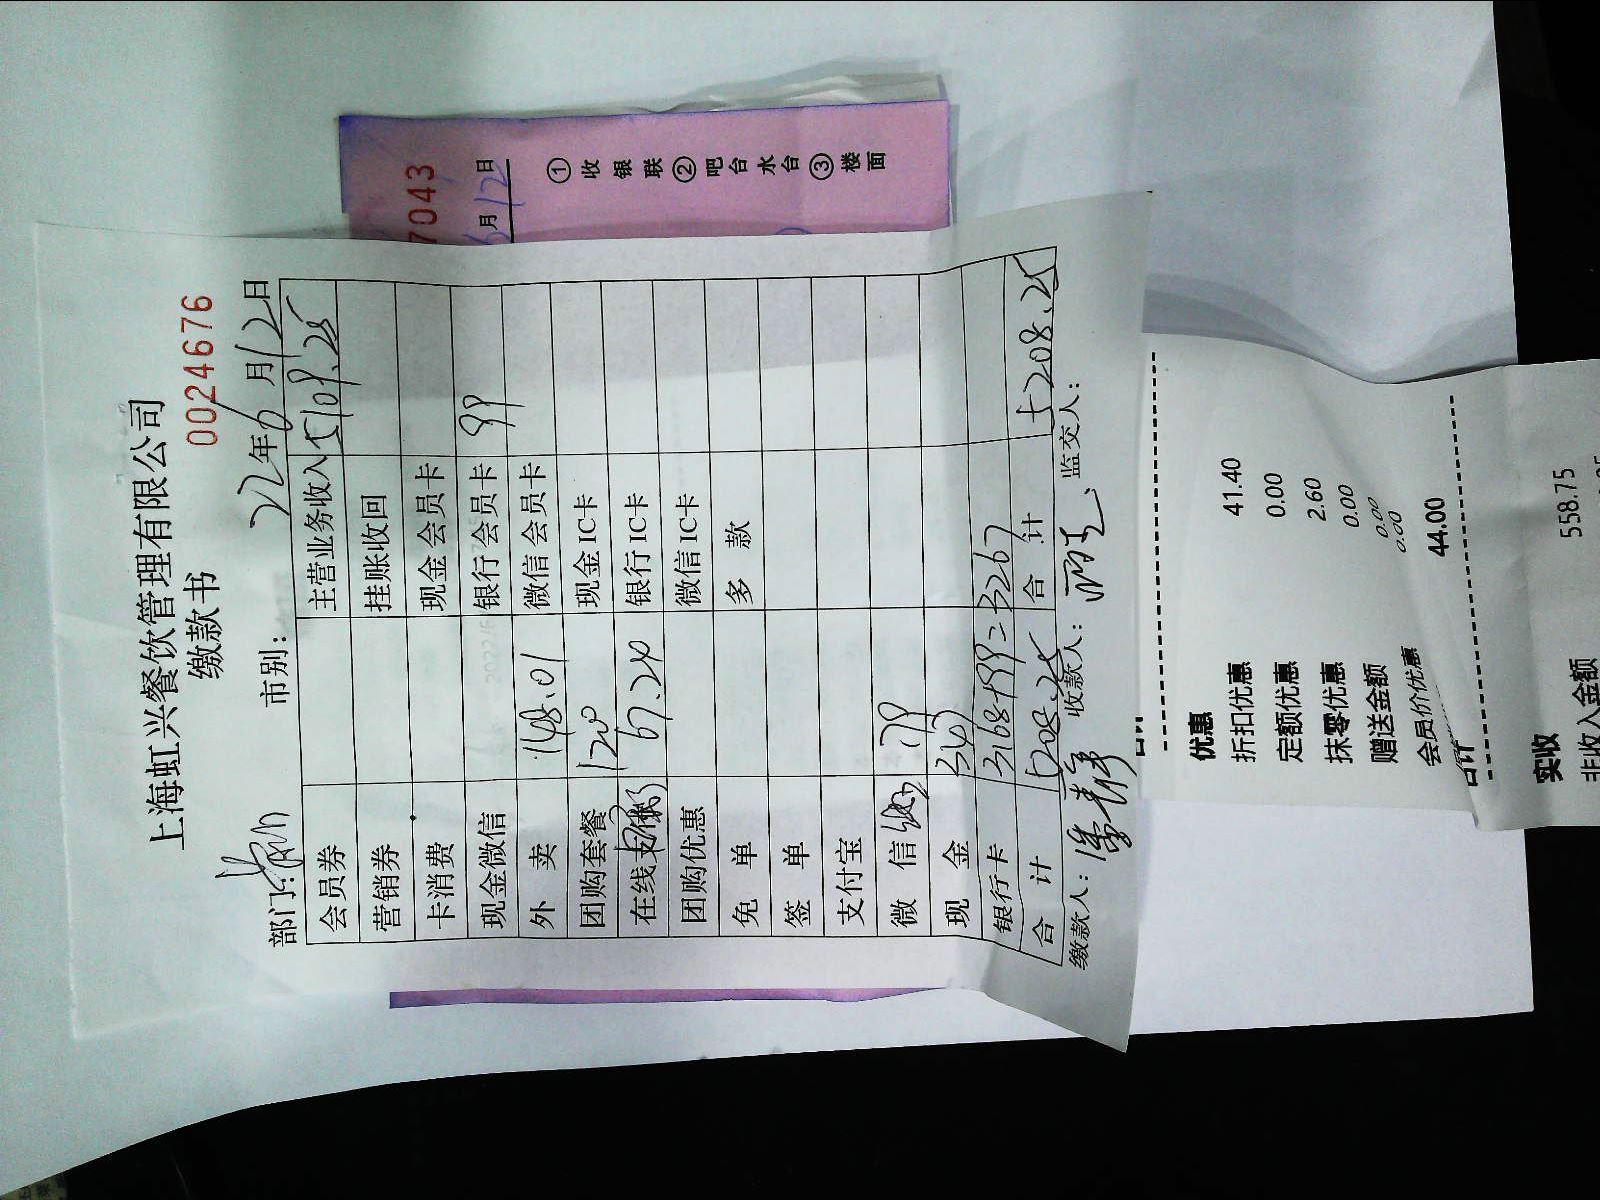 上海虹兴餐饮管理有限公司
缴款书
0024676
部门: 市别: 22年6月12日
会员券 主营业务收入 5109.25
营销券 挂账收回
卡消费 现金会员卡
现金微信 银行会员卡 99
外 卖 148.01 微信会员卡
团购套餐 1200 现金IC卡
在线支 67.24 银行IC卡
团购优惠 微信IC卡
免 单 多 款
签 单
支付宝
微 信 .79
现 金 347
银行卡 3168+99=3267
合 计 5208.25 合 计 5208.25
缴款人: 收款人: 监交人:
7043
6月12日
①收银联②吧台水台③楼面
合计
优惠
折扣优惠 41.40
定额优惠 0.00
抹零优惠 2.60
赠送金额 0.00
会员价优惠 0.00
0.00
合计 44.00
实收
非收入金额 558.75